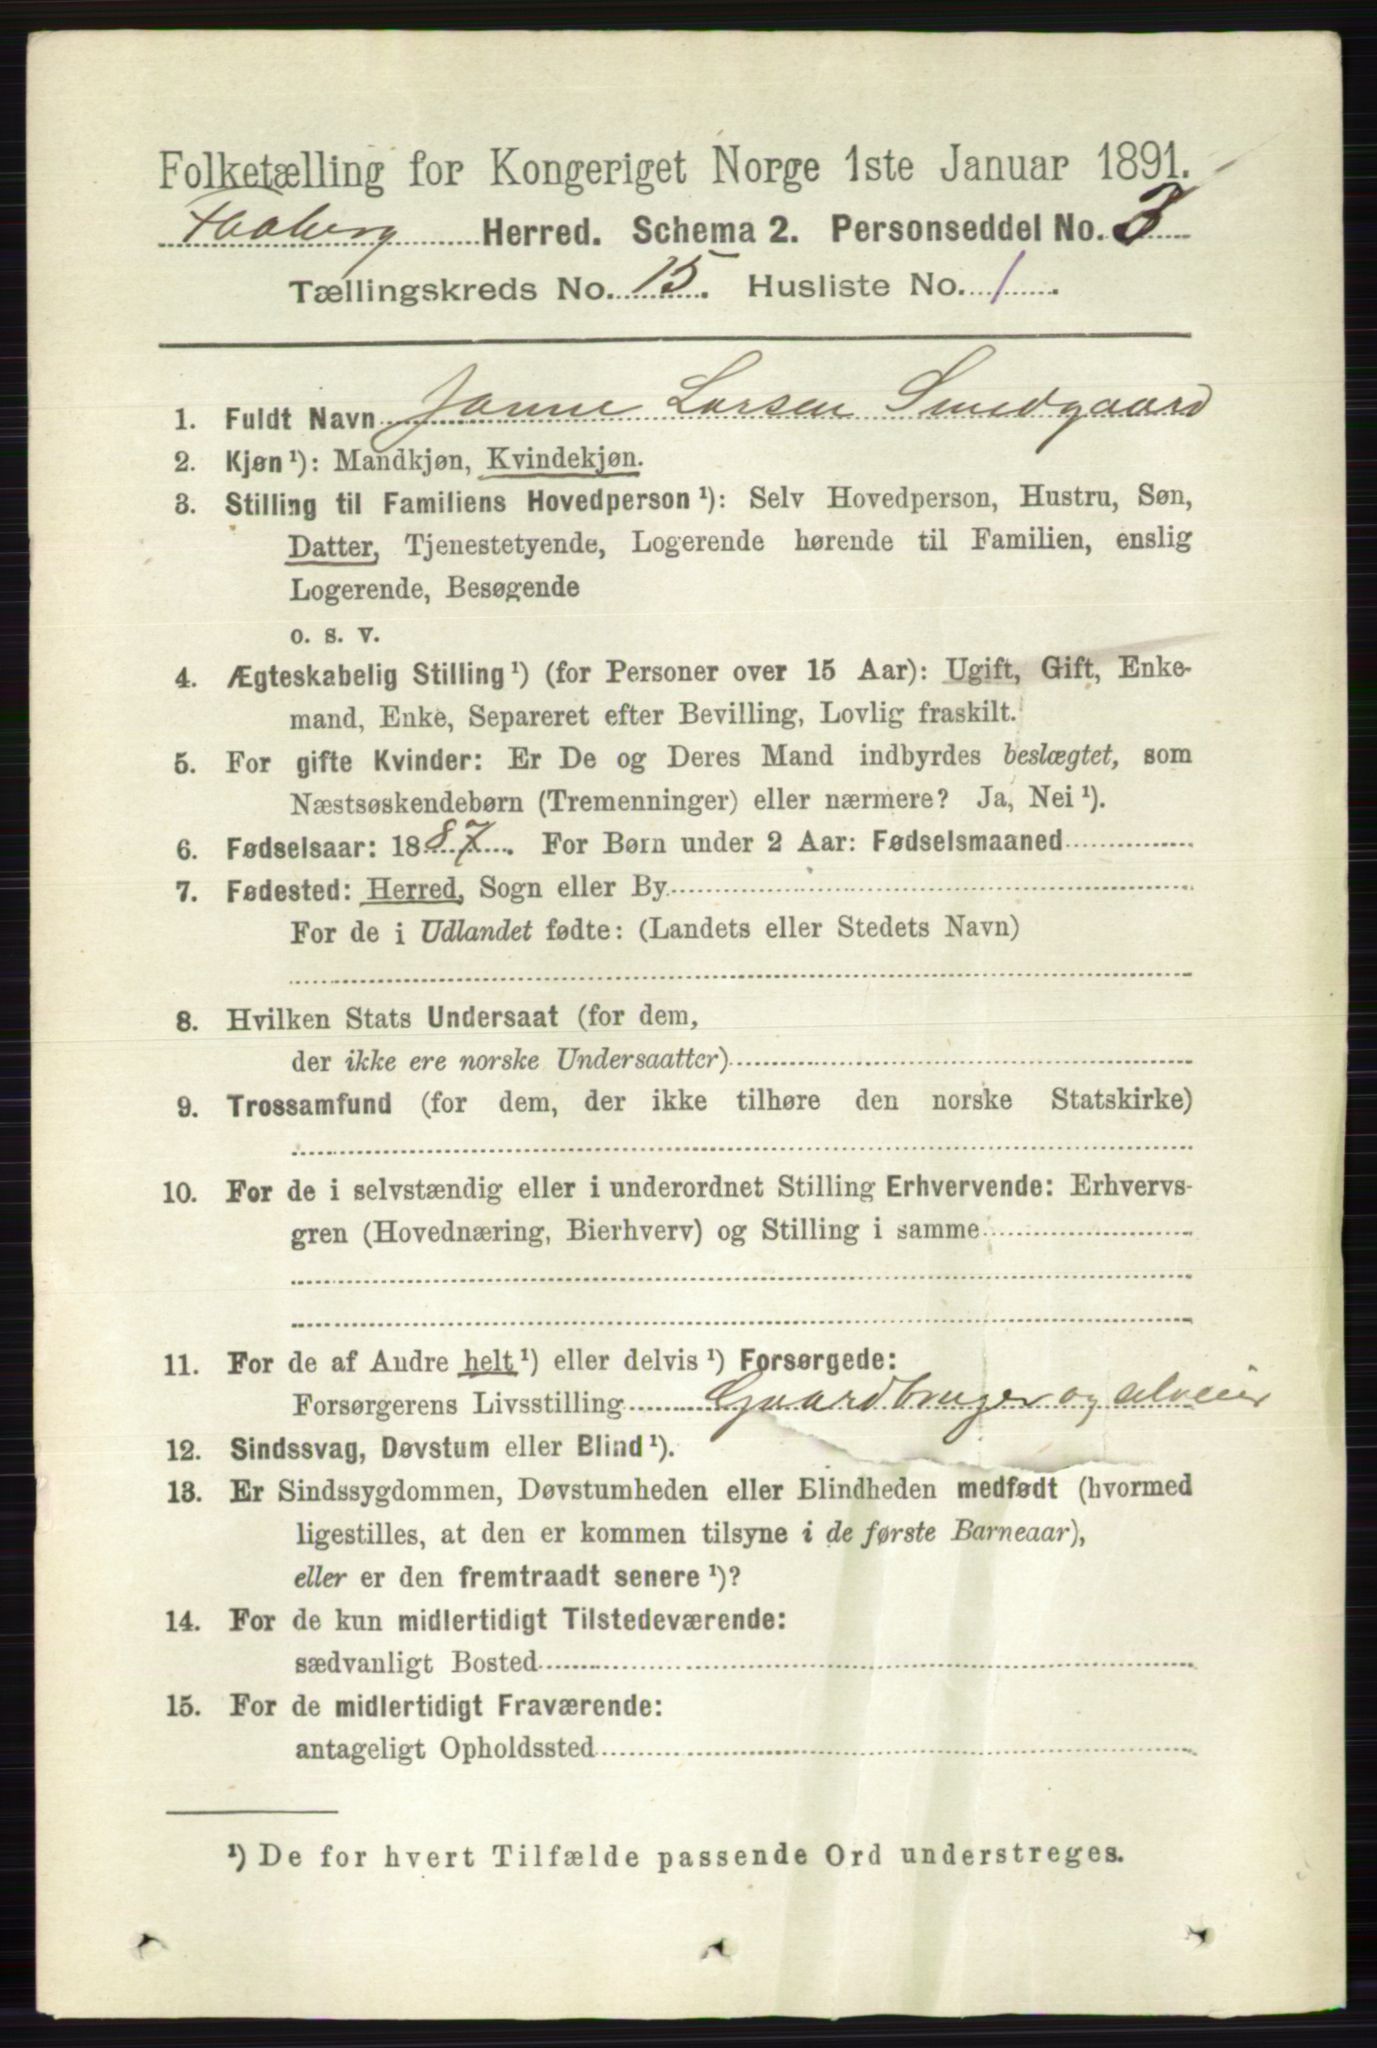 Folketælling for Kongeriget Norge 1ste Januar 1891.
Faaberg Herred. Schema 2. Personseddel No. 3
Tællingskreds No. 15. Husliste No. 1.
1. Fuldt Navn Janne Larsen Smedgaard
2. Kjøn ¹): Mandkjøn, Kvindekjøn.
3. Stilling til Familiens Hovedperson ¹): Selv Hovedperson, Hustru, Søn,
Datter, Tjenestetyende, Logerende hørende til Familien, enslig
Logerende, Besøgende
o. s. v.
4. Ægteskabelig Stilling ¹) (for Personer over 15 Aar): Ugift, Gift, Enke-
mand, Enke, Separeret efter Bevilling, Lovlig fraskilt.
5. For gifte Kvinder: Er De og Deres Mand indbyrdes beslægtet, som
Næstsøskendebørn (Tremenninger) eller nærmere? Ja, Nei ¹).
6. Fødselsaar: 1887. For Børn under 2 Aar: Fødselsmaaned
7. Fødested: Herred, Sogn eller By
For de i Udlandet fødte: (Landets eller Stedets Navn)
8. Hvilken Stats Undersaat (for dem,
der ikke ere norske Undersaatter)
9. Trossamfund (for dem, der ikke tilhøre den norske Statskirke)
10. For de i selvstændig eller i underordnet Stilling Erhvervende: Erhvervs-
gren (Hovednæring, Bierhverv) og Stilling i samme
11. For de af Andre helt ¹) eller delvis ¹) Forsørgede:
Forsørgerens Livsstilling Gaardbruger og
12. Sindssvag, Døvstum eller Blind ¹).
13. Er Sindssygdommen, Døvstumheden eller Blindheden medfødt (hvormed
ligestilles, at den er kommen tilsyne i de første Barneaar),
eller er den fremtraadt senere ¹)?
14. For de kun midlertidigt Tilstedeværende:
sædvanligt Bosted
15. For de midlertidigt Fraværende:
antageligt Opholdssted
¹) De for hvert Tilfælde passende Ord understreges.